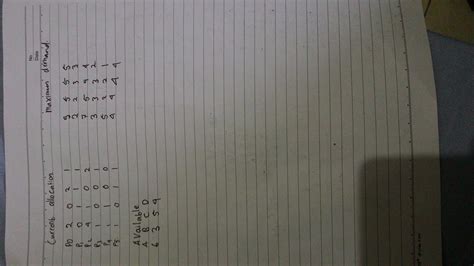 No
Date
Current allocation Maximum demand
P0 2 0 2 1 9 5 5 5
P1 0 1 1 1 2 2 3 3
P2 4 1 0 2 7 5 4 4
P3 1 0 0 1 3 3 3 2
P4 1 1 0 0 5 2 2 1
P5 1 0 1 1 4 4 4 4
Available
A B C D
6 3 5 4